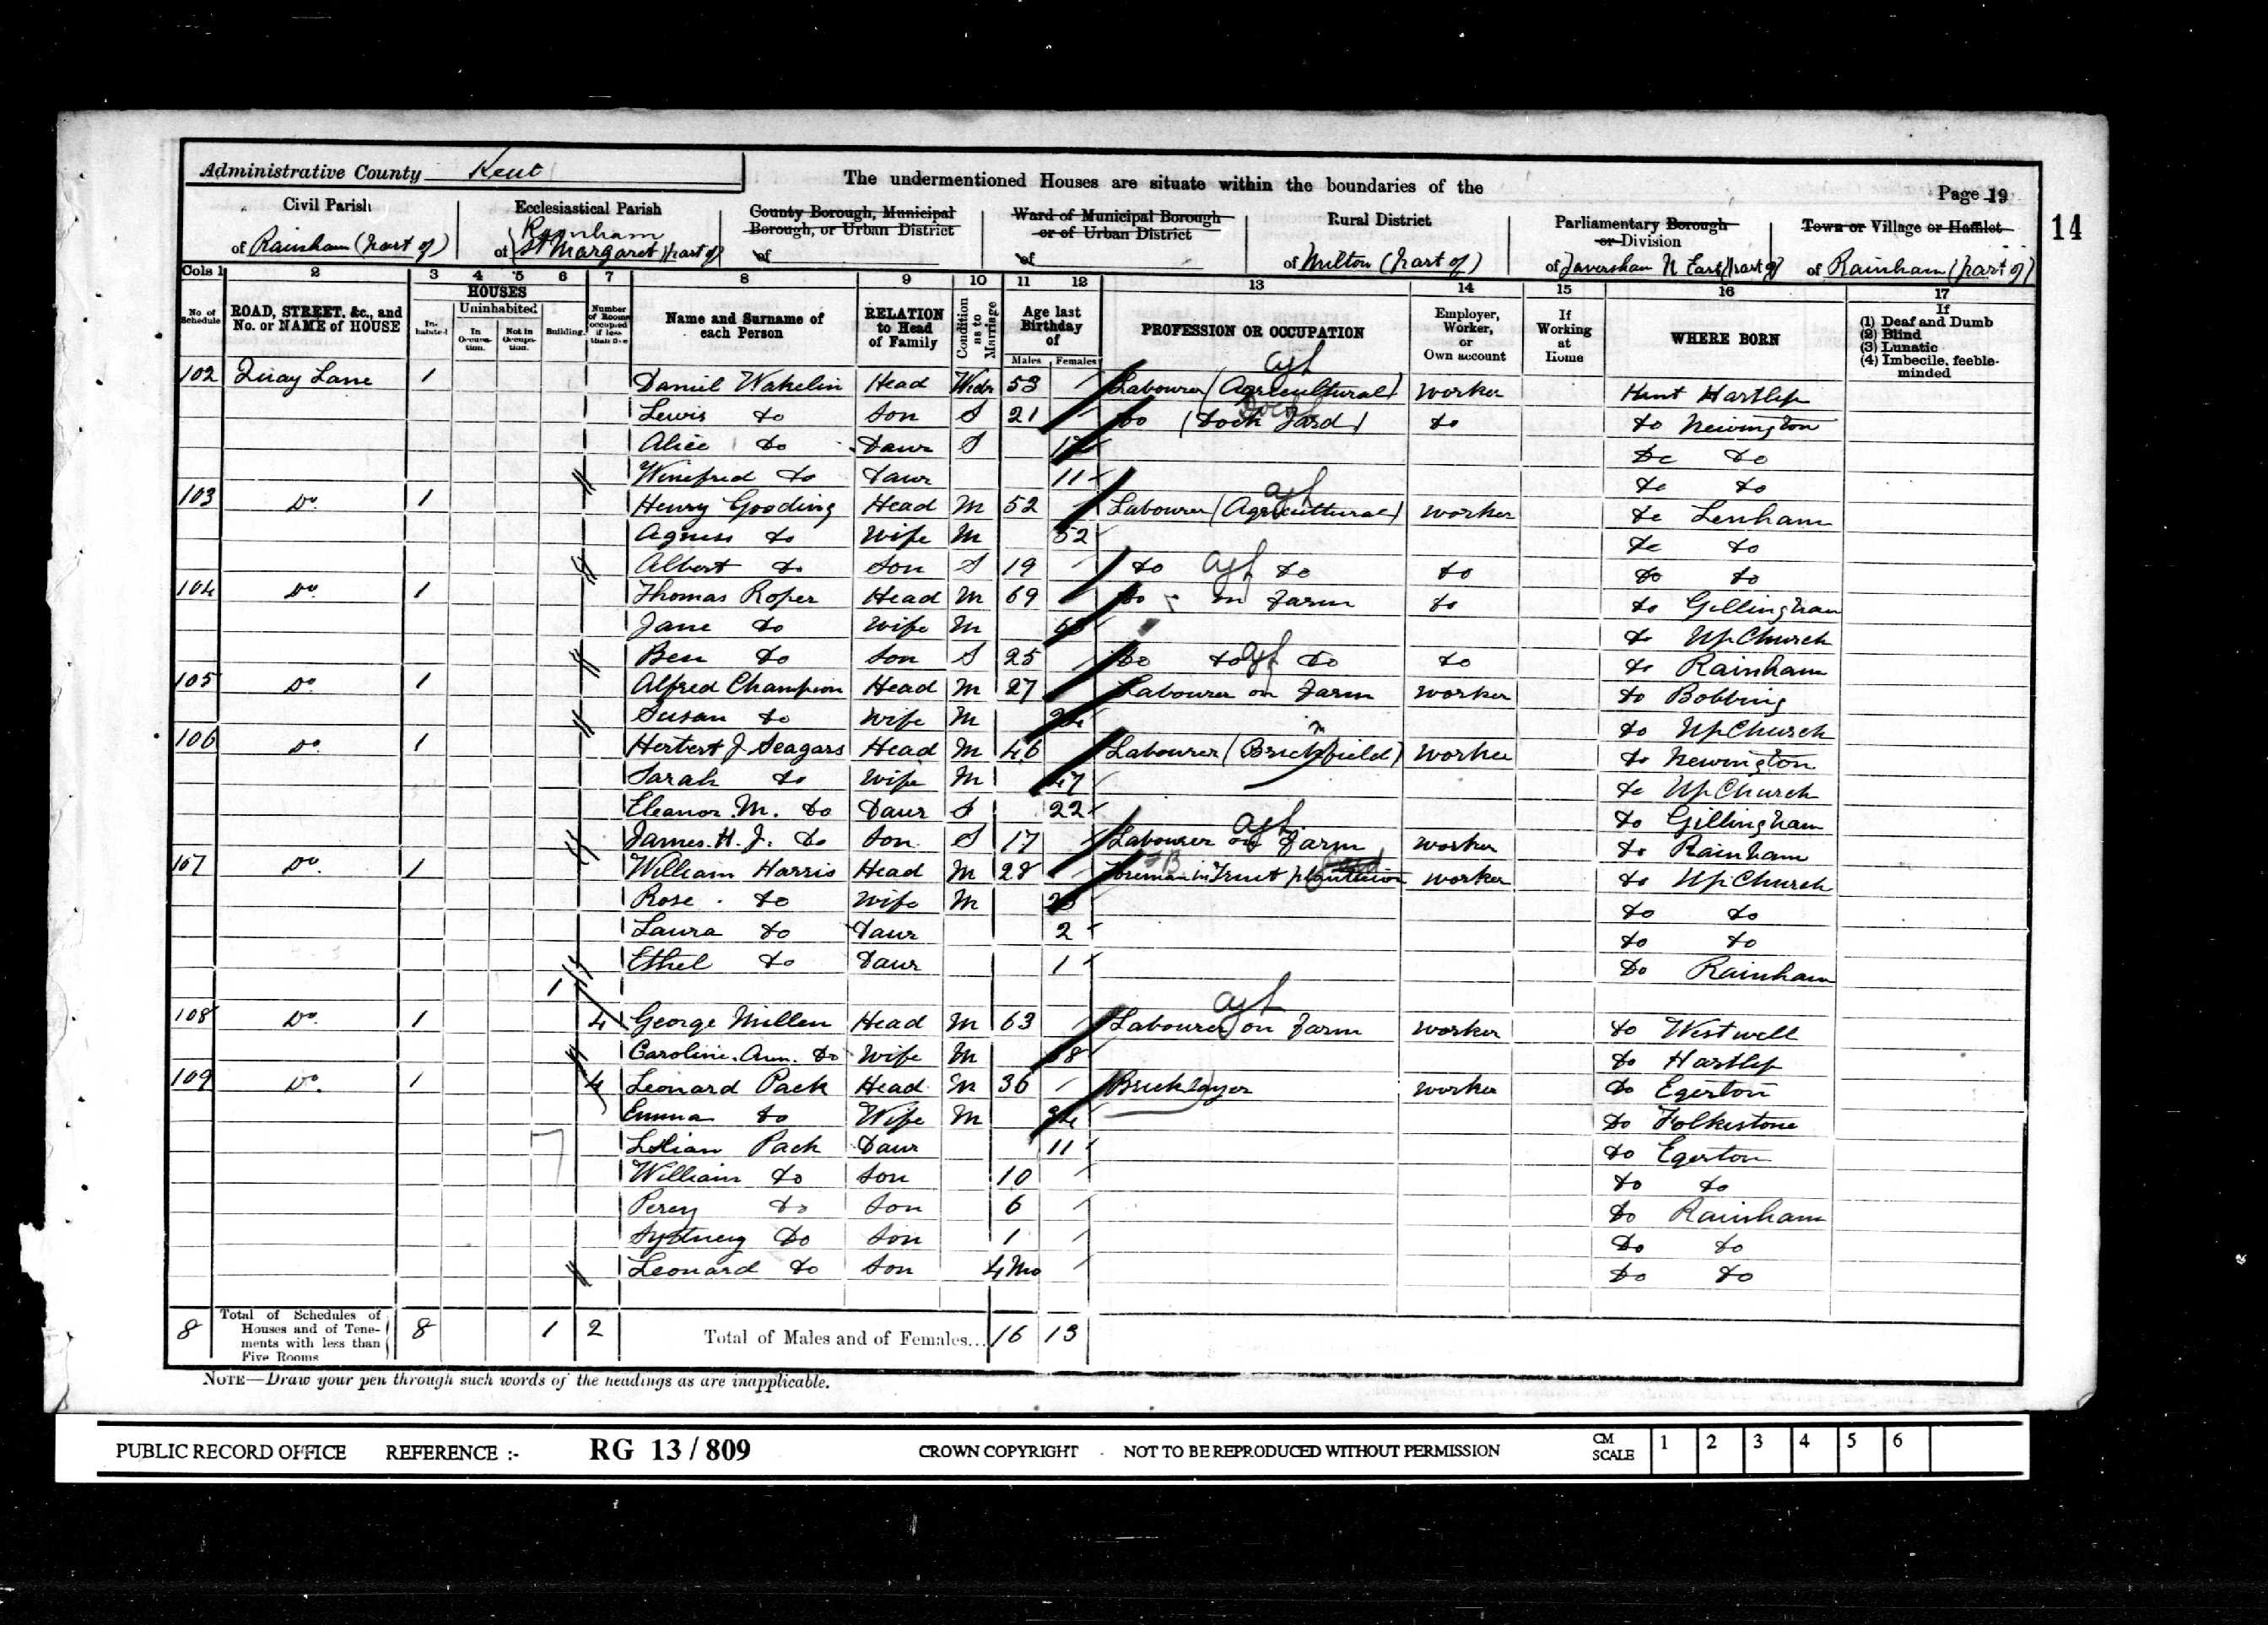 Administrative County Kent
The undermentioned Houses are situate within the boundaries of the
Page 19
14
Civil Parish
of Rainham (part of)
Ecclesiastical Parish
of Rainham St Margaret (part of)
County Borough, Municipal Borough, or Urban District
of
Ward of Municipal Borough or of Urban District
of
Rural District
of Milton (part of)
Parliamentary Borough or Division
of Faversham N East (part of)
Town or Village or Hamlet
of Rainham (part of)
Cols 1 2 3 4 5 6 7 8 9 10 11 12 13 14 15 16 17
No of Schedule
ROAD, STREET, &c., and No. or NAME of HOUSE
HOUSES
Inhabited
Uninhabited
In Occupation.
Not in Occupation.
Building.
Number of Rooms occupied if less than five
Name and Surname of each Person
RELATION to Head of Family
Condition as to Marriage
Age last Birthday of
Males Females
PROFESSION OR OCCUPATION
Employer, Worker, or Own account
If Working at Home
WHERE BORN
If
(1) Deaf and Dumb
(2) Blind
(3) Lunatic
(4) Imbecile, feeble-minded
102 Quay Lane 1 Daniel Wakelin Head Widr 53 Labourer (Agricultural) worker Kent Hartlip
Lewis do Son S 21 Do (Dock Yard) do do Newington
Alice do Daur S Do do
Winefred do Daur 11 do do
103 Do. 1 Henry Gooding Head M 52 Labourer (Agricultural) worker do Lenham
Agness do Wife M 52 do do
Albert do Son S 19 do do do do do
104 Do. 1 Thomas Roper Head M 69 Do on Farm do do Gillingham
Jane do Wife M do UpChurch
Ben do Son S 25 Do do do do do Rainham
105 Do. 1 Alfred Champion Head M 27 Labourer on Farm worker do Bobbing
Susan do Wife M do UpChurch
106 Do. 1 Herbert J Seagars Head M 46 Labourer (Brickfield) worker do Newington
Sarah do Wife M 47 do UpChurch
Eleanor. M. do Daur S 22 do Gillingham
James. H. J. do Son S 17 Labourer on Farm worker do Rainham
107 Do. 1 William Harris Head M 28 Foreman in Fruit plantation worker do UpChurch
Rose do Wife M do do
Laura do Daur 2 do do
Ethel do Daur 1 Do Rainham
1
108 Do. 1 4 George Millen Head M 63 Labourer on Farm worker do Westwell
Caroline. Ann. do Wife M do Hartlip
109 Do. 1 4 Leonard Pack Head M 36 Bricklayer worker do Egerton
Emma do Wife M Do Folkestone
Lilian Pack Daur 11 do Egerton
William do Son 10 do do
Percy do Son 6 Do Rainham
Sydney Do Son 1 Do do
Leonard do Son 4 Mo Do do
8 Total of Schedules of Houses and of Tenements with less than Five Rooms 8 1 2 Total of Males and of Females... 16 13
NOTE—Draw your pen through such words of the headings as are inapplicable.
PUBLIC RECORD OFFICE REFERENCE :- RG 13 / 809 CROWN COPYRIGHT - NOT TO BE REPRODUCED WITHOUT PERMISSION CM SCALE 1 2 3 4 5 6